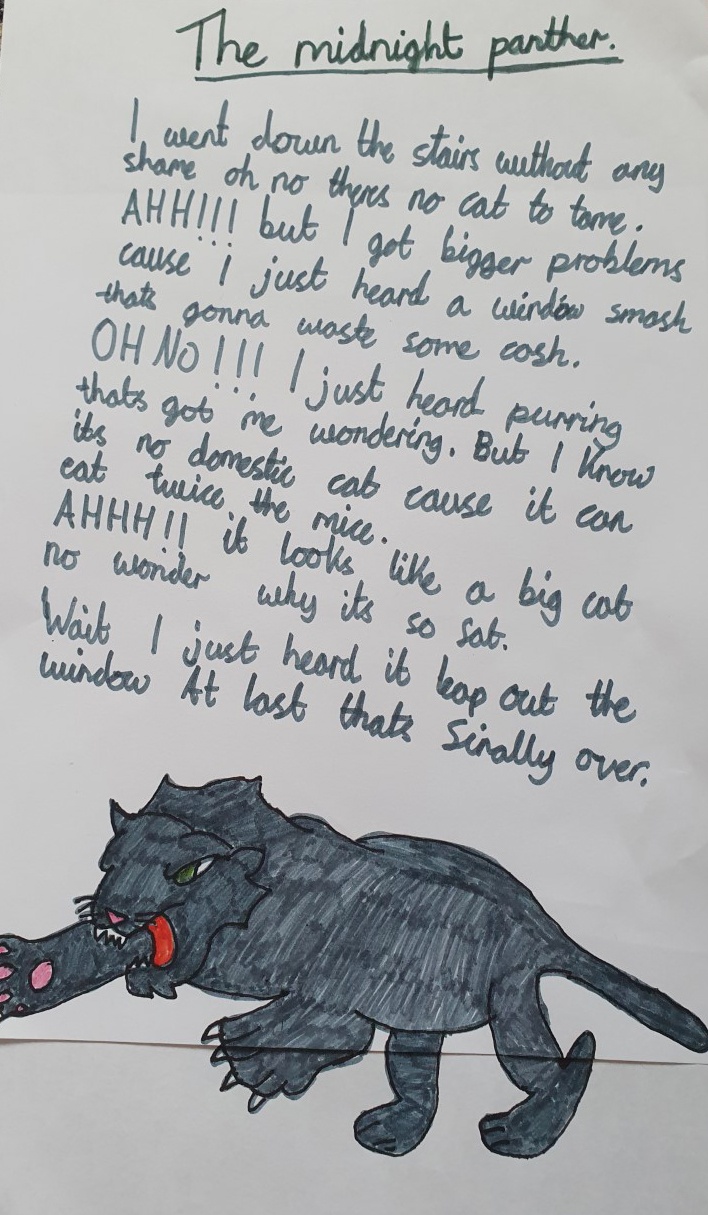 The midnight panther.
I went down the stairs without any
shame oh no theres no cat to tame.
AHH!!! but I got bigger problems
cause i just heard a window smash
thats gonna waste some cash.
OH NO!!! I just heard purring
thats got me wondering. But I know
its no domestic cat cause it can
eat twice the mice.
AHHH!! it looks like a big cat
no wonder why its so fat.
Wait I just heard it leap out the
window At last thats finally over.